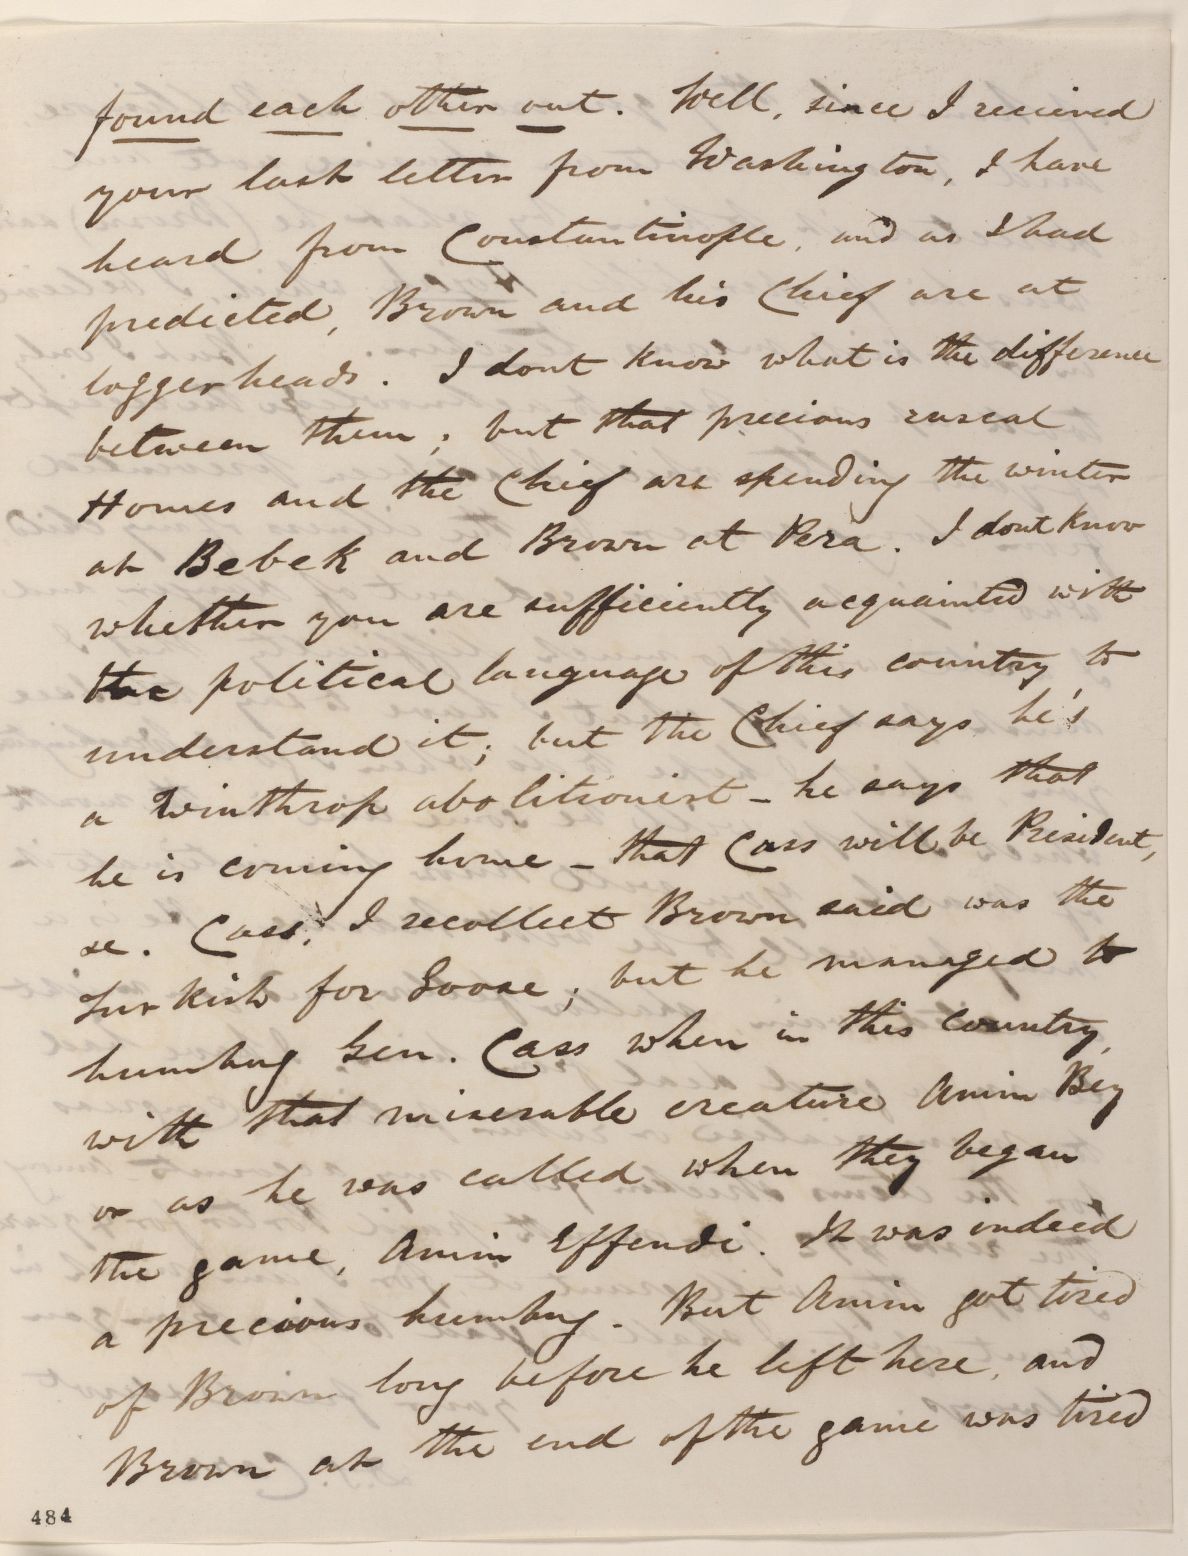 found each other out. Well, since I recieved
your last letter from Washington, I have
heard from Constantinople, and as I had
predicted, Brown and his Chief are at
loggerheads. I dont know what is the difference
between them; but that precious rascal
Homes and the Chief are spending the winter
at Bebek and Brown at Pera. I dont know
whether you are sufficiently acquainted with
the political language of this country to
understand it; but the Chief says he's
a Winthrop abolitionist - he says that
he is coming home - that Cass will be President,
&c. Cass, I recollect Brown said was the
Turkish for Goose; but he managed to
humbug Gen. Cass when in this country,
with that miserable creature Amin Bey
or as he was called when they began
the game, Amin Effendi. It was indeed
a precious humbug. But Amin got tired
of Brown long before he left here, and
Brown at the end of the game was tired
484